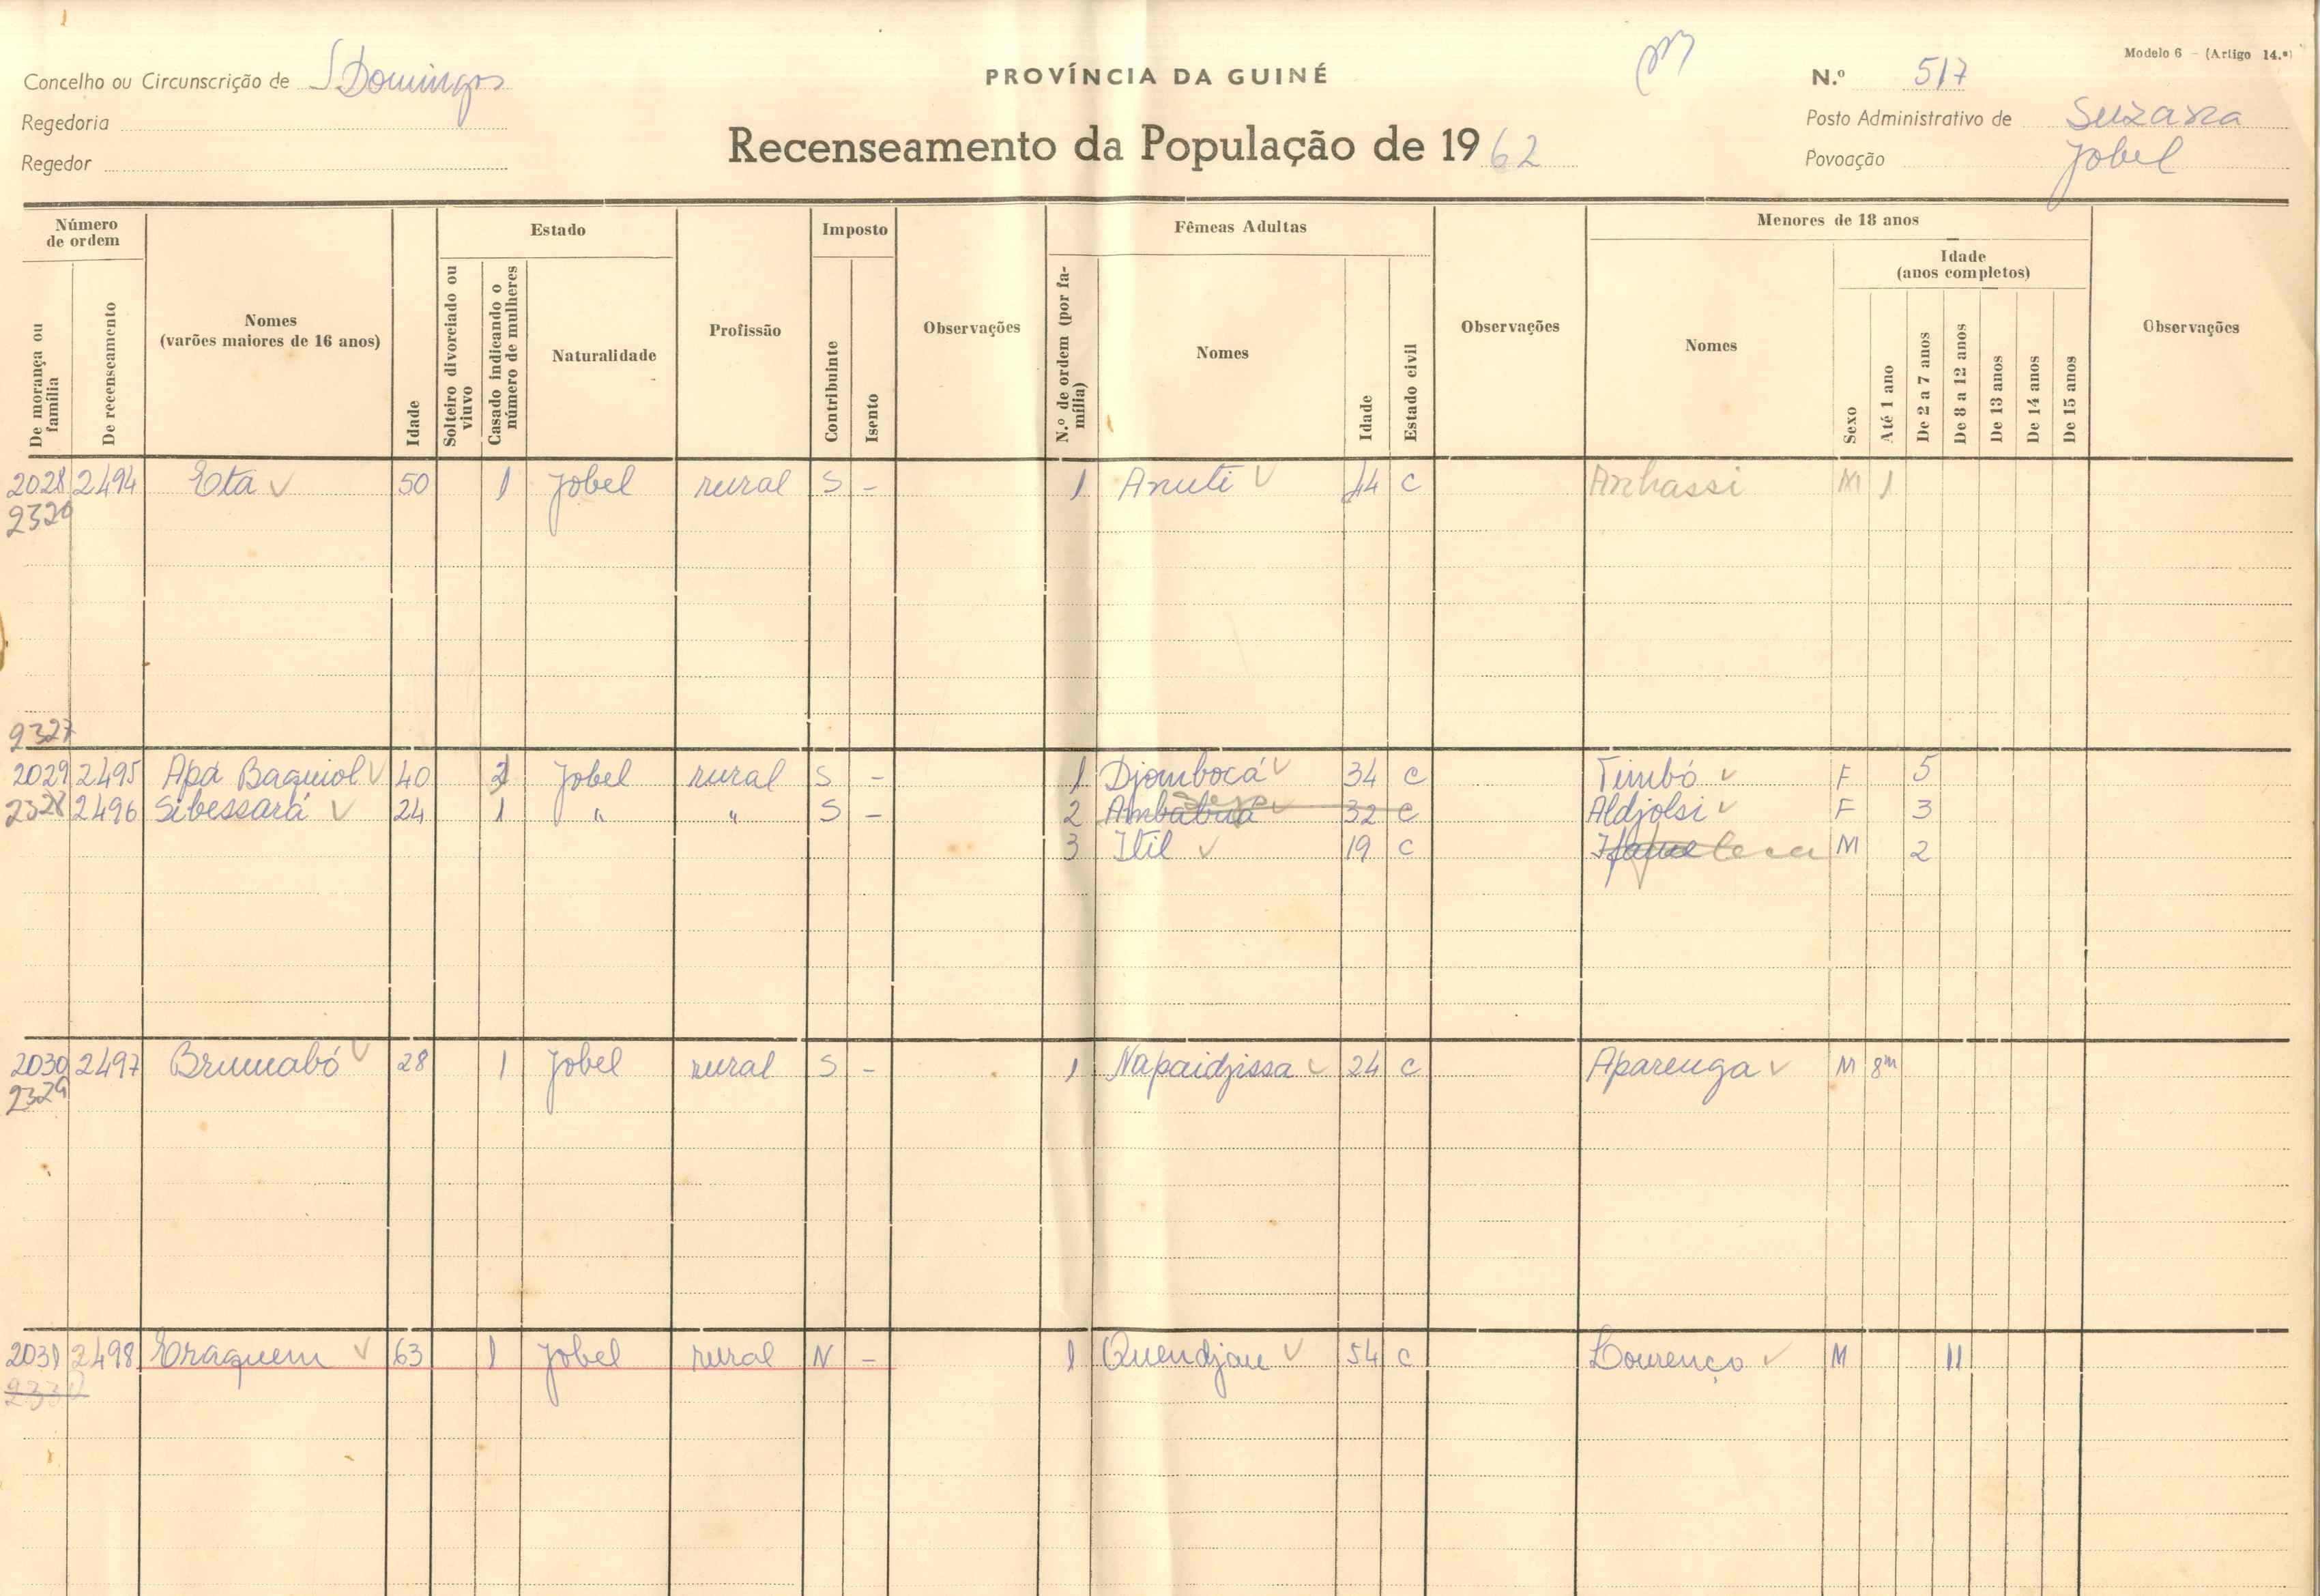 Modelo 6 - (Artigo 14.º)
Concelho ou Circunscrição de S Domingos
PROVÍNCIA DA GUINÉ
N.º 517
Regedoria
Recenseamento da População de 1962
Posto Administrativo de Suzana
Regedor
Povoação Jobel
Número de ordem
Estado
Imposto
Fêmeas Adultas
Menores de 18 anos
Idade (anos completos)
De morança ou família
De recenseamento
Nomes (varões maiores de 16 anos)
Idade
Solteiro divorciado ou viuvo
Casado indicando o número de mulheres
Naturalidade
Profissão
Contribuinte
Isento
Observações
N.º de ordem (por família)
Nomes
Idade
Estado civil
Observações
Nomes
Sexo
Até 1 ano
De 2 a 7 anos
De 8 a 12 anos
De 13 anos
De 14 anos
De 15 anos
Observações
2028 2494 Eta 50 1 Jobel rural S - 1 Anuti 44 c Anhassi M 1
2326
2327
2029 2495 Apá Baquiol 40 2 Jobel rural S - 1 Djombocá 34 c Timbó F 5
2328 2496 Sibessará 24 1 " " S - 2 Ambabua 32 c Aldjolsi F 3
3 Itil 19 c M 2
2030 2497 Brumabó 28 1 Jobel rural S - 1 Napaidjissa 24 c Aparenga M 8m
2329
2031 2498 Eraquem 63 1 Jobel rural N - 1 Quendjau 54 c Lourenço M 11